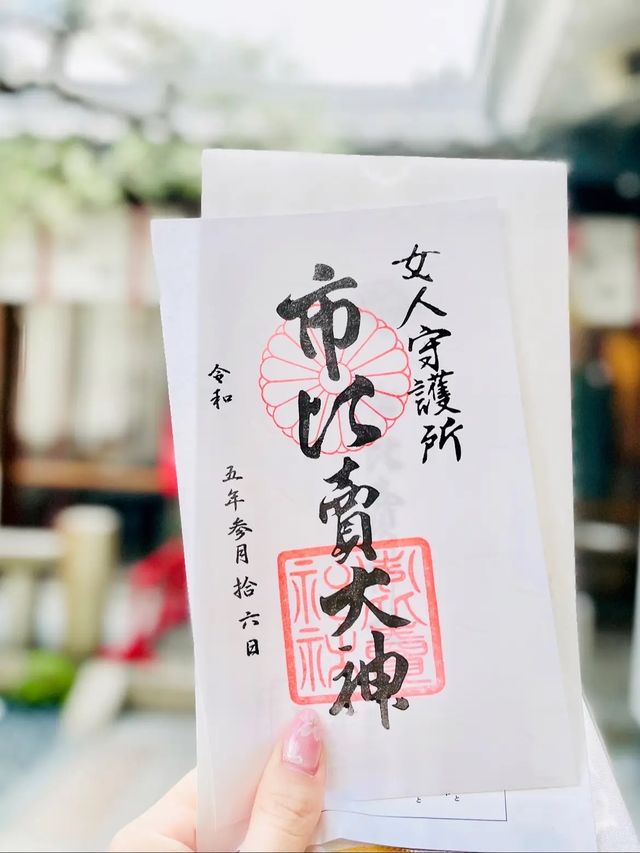 女人守護所
市比賣大神
令和 五年参月拾六日